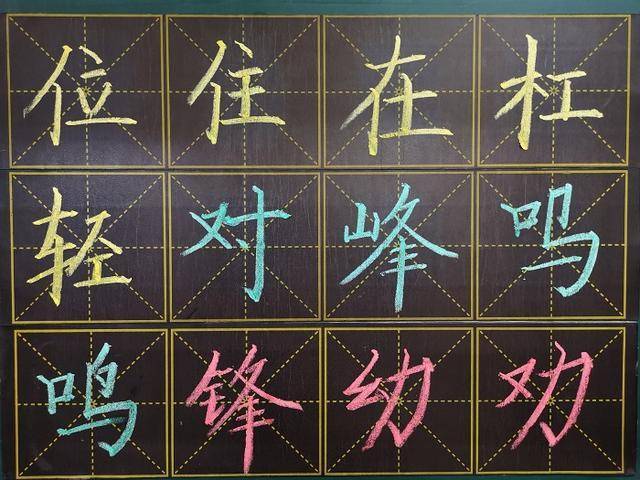 位住在杠
轻对峰呜
鸣锋幼劝